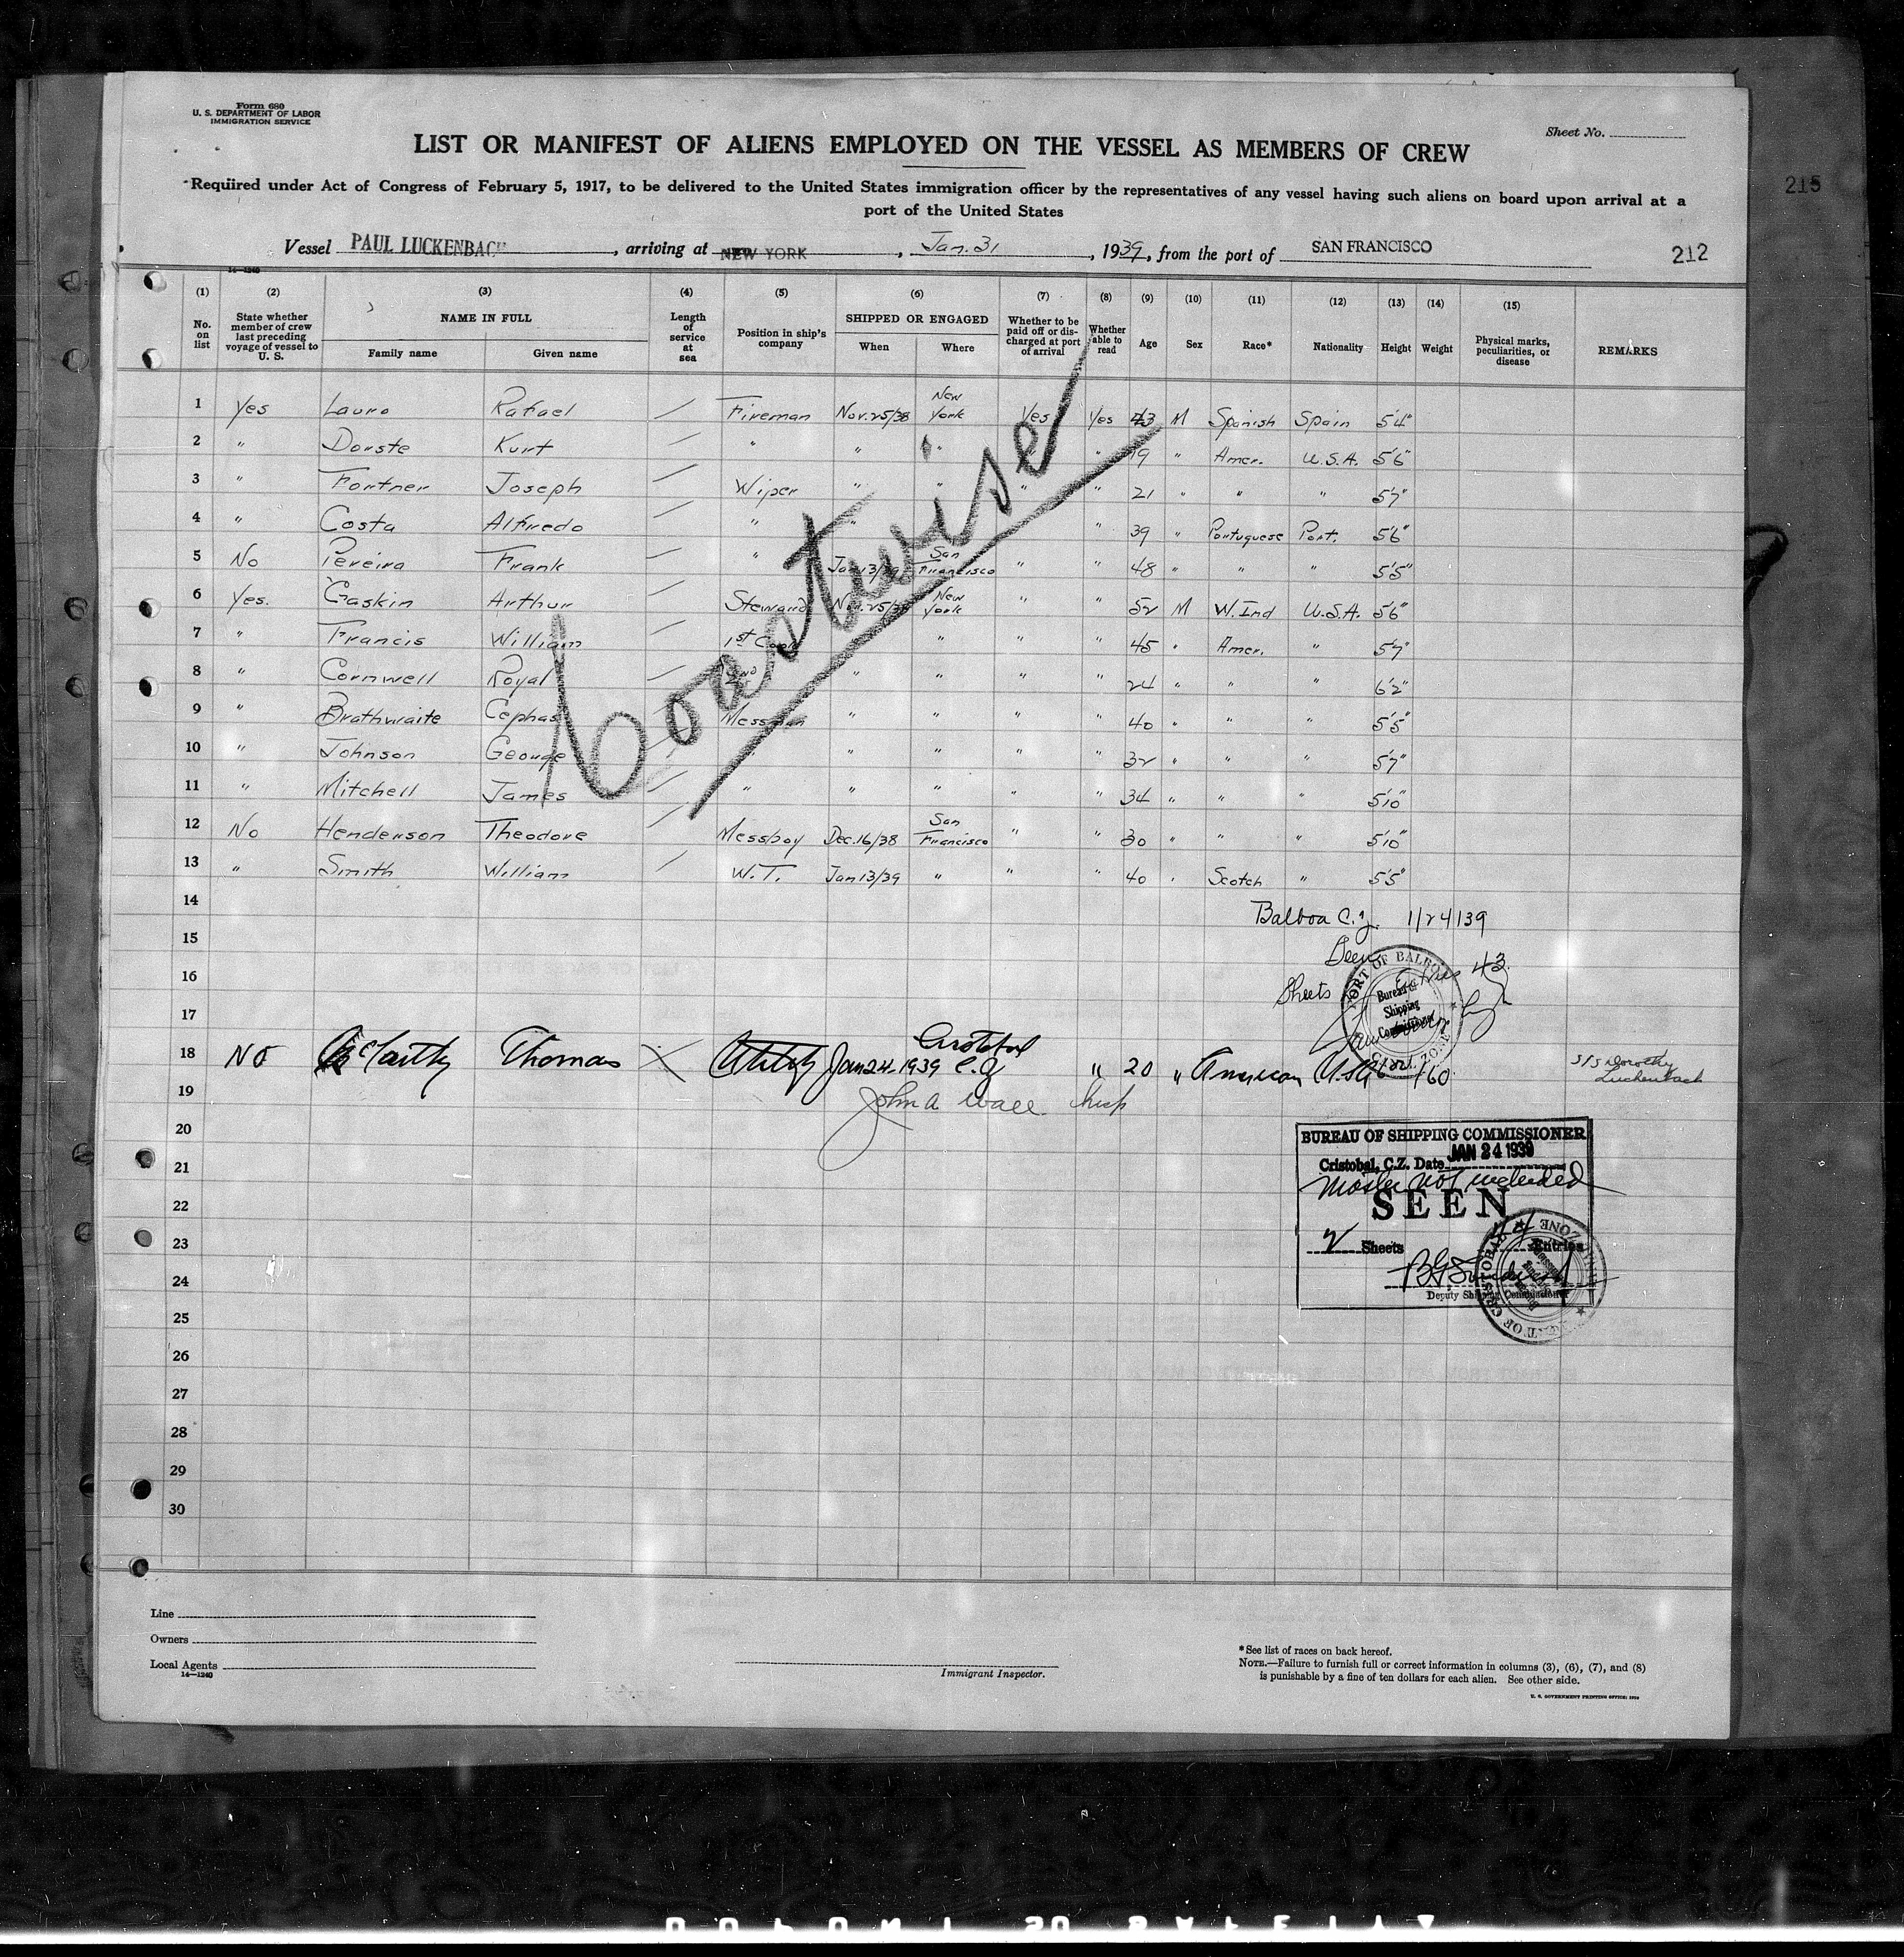 Form 680
U. S. DEPARTMENT OF LABOR
IMMIGRATION SERVICE
Sheet No.
LIST OR MANIFEST OF ALIENS EMPLOYED ON THE VESSEL AS MEMBERS OF CREW
Required under Act of Congress of February 5, 1917, to be delivered to the United States immigration officer by the representatives of any vessel having such aliens on board upon arrival at a
port of the United States
215
Vessel PAUL LUCKENBACH, arriving at NEW YORK, Jan. 31, 1939, from the port of SAN FRANCISCO
212
14-1240
(1) (2) (3) (4) (5) (6) (7) (8) (9) (10) (11) (12) (13) (14) (15)
No. on list State whether member of crew last preceding voyage of vessel to U. S. NAME IN FULL Family name Given name Length of service at sea Position in ship's company SHIPPED OR ENGAGED When Where Whether to be paid off or discharged at port of arrival Whether able to read Age Sex Race* Nationality Height Weight Physical marks, peculiarities, or disease REMARKS
1 Yes Lauro Rafael / Fireman Nov. 25/38 New York Yes Yes 43 M Spanish Spain 5'4"
2 " Dorste Kurt / " " " " 19 " Amer. U.S.A. 5'6"
3 " Fortner Joseph / Wiper " " " " 21 " " " 5'7"
4 " Costa Alfredo / " " " 39 " Portuguese Port. 5'6"
5 No Pereira Frank / " Jan 13/39 San Francisco " " 48 " " " 5'5"
6 Yes. Gaskin Arthur / Steward Nov. 25/38 New York " " 52 M W. Ind U.S.A. 5'6"
7 " Francis William / 1st Cook " " " 45 " Amer. " 5'7"
8 " Cornwell Royal / 2nd " " " " 24 " " " 6'2"
9 " Brathwaite Cephas Messman " " " " 40 " " " 5'5"
10 " Johnson George / " " " " " 32 " " " 5'7"
11 " Mitchell James / " " " " " 34 " " " 5'10"
12 No Henderson Theodore / Messboy Dec. 16/38 San Francisco " " 30 " " " 5'10"
13 " Smith William / W.T. Jan 13/39 " " " 40 " Scotch " 5'5"
Coastwise
14 Balboa C.Z. 1/24/39
15 Seen
16 Sheets 43
PORT OF BALBOA
Bureau of
Shipping
Commissioner
17
18 No McCarthy Thomas Utility Jan 24 1939 Cristobal C.Z. " 20 " American U.S.A. 160 S/S Dorothy Luckenbach
19 John A. Wall
20
BUREAU OF SHIPPING COMMISSIONER
Cristobal, C.Z. Date JAN 24 1939
21
Master not included
22 SEEN
23 2 Sheets 44 Entries
24
Deputy Shipping Commissioner
PORT OF CRISTOBAL
25
26
27
28
29
30
Line
Owners
Local Agents
14-1240
Immigrant Inspector.
*See list of races on back hereof.
NOTE.—Failure to furnish full or correct information in columns (3), (6), (7), and (8)
is punishable by a fine of ten dollars for each alien. See other side.